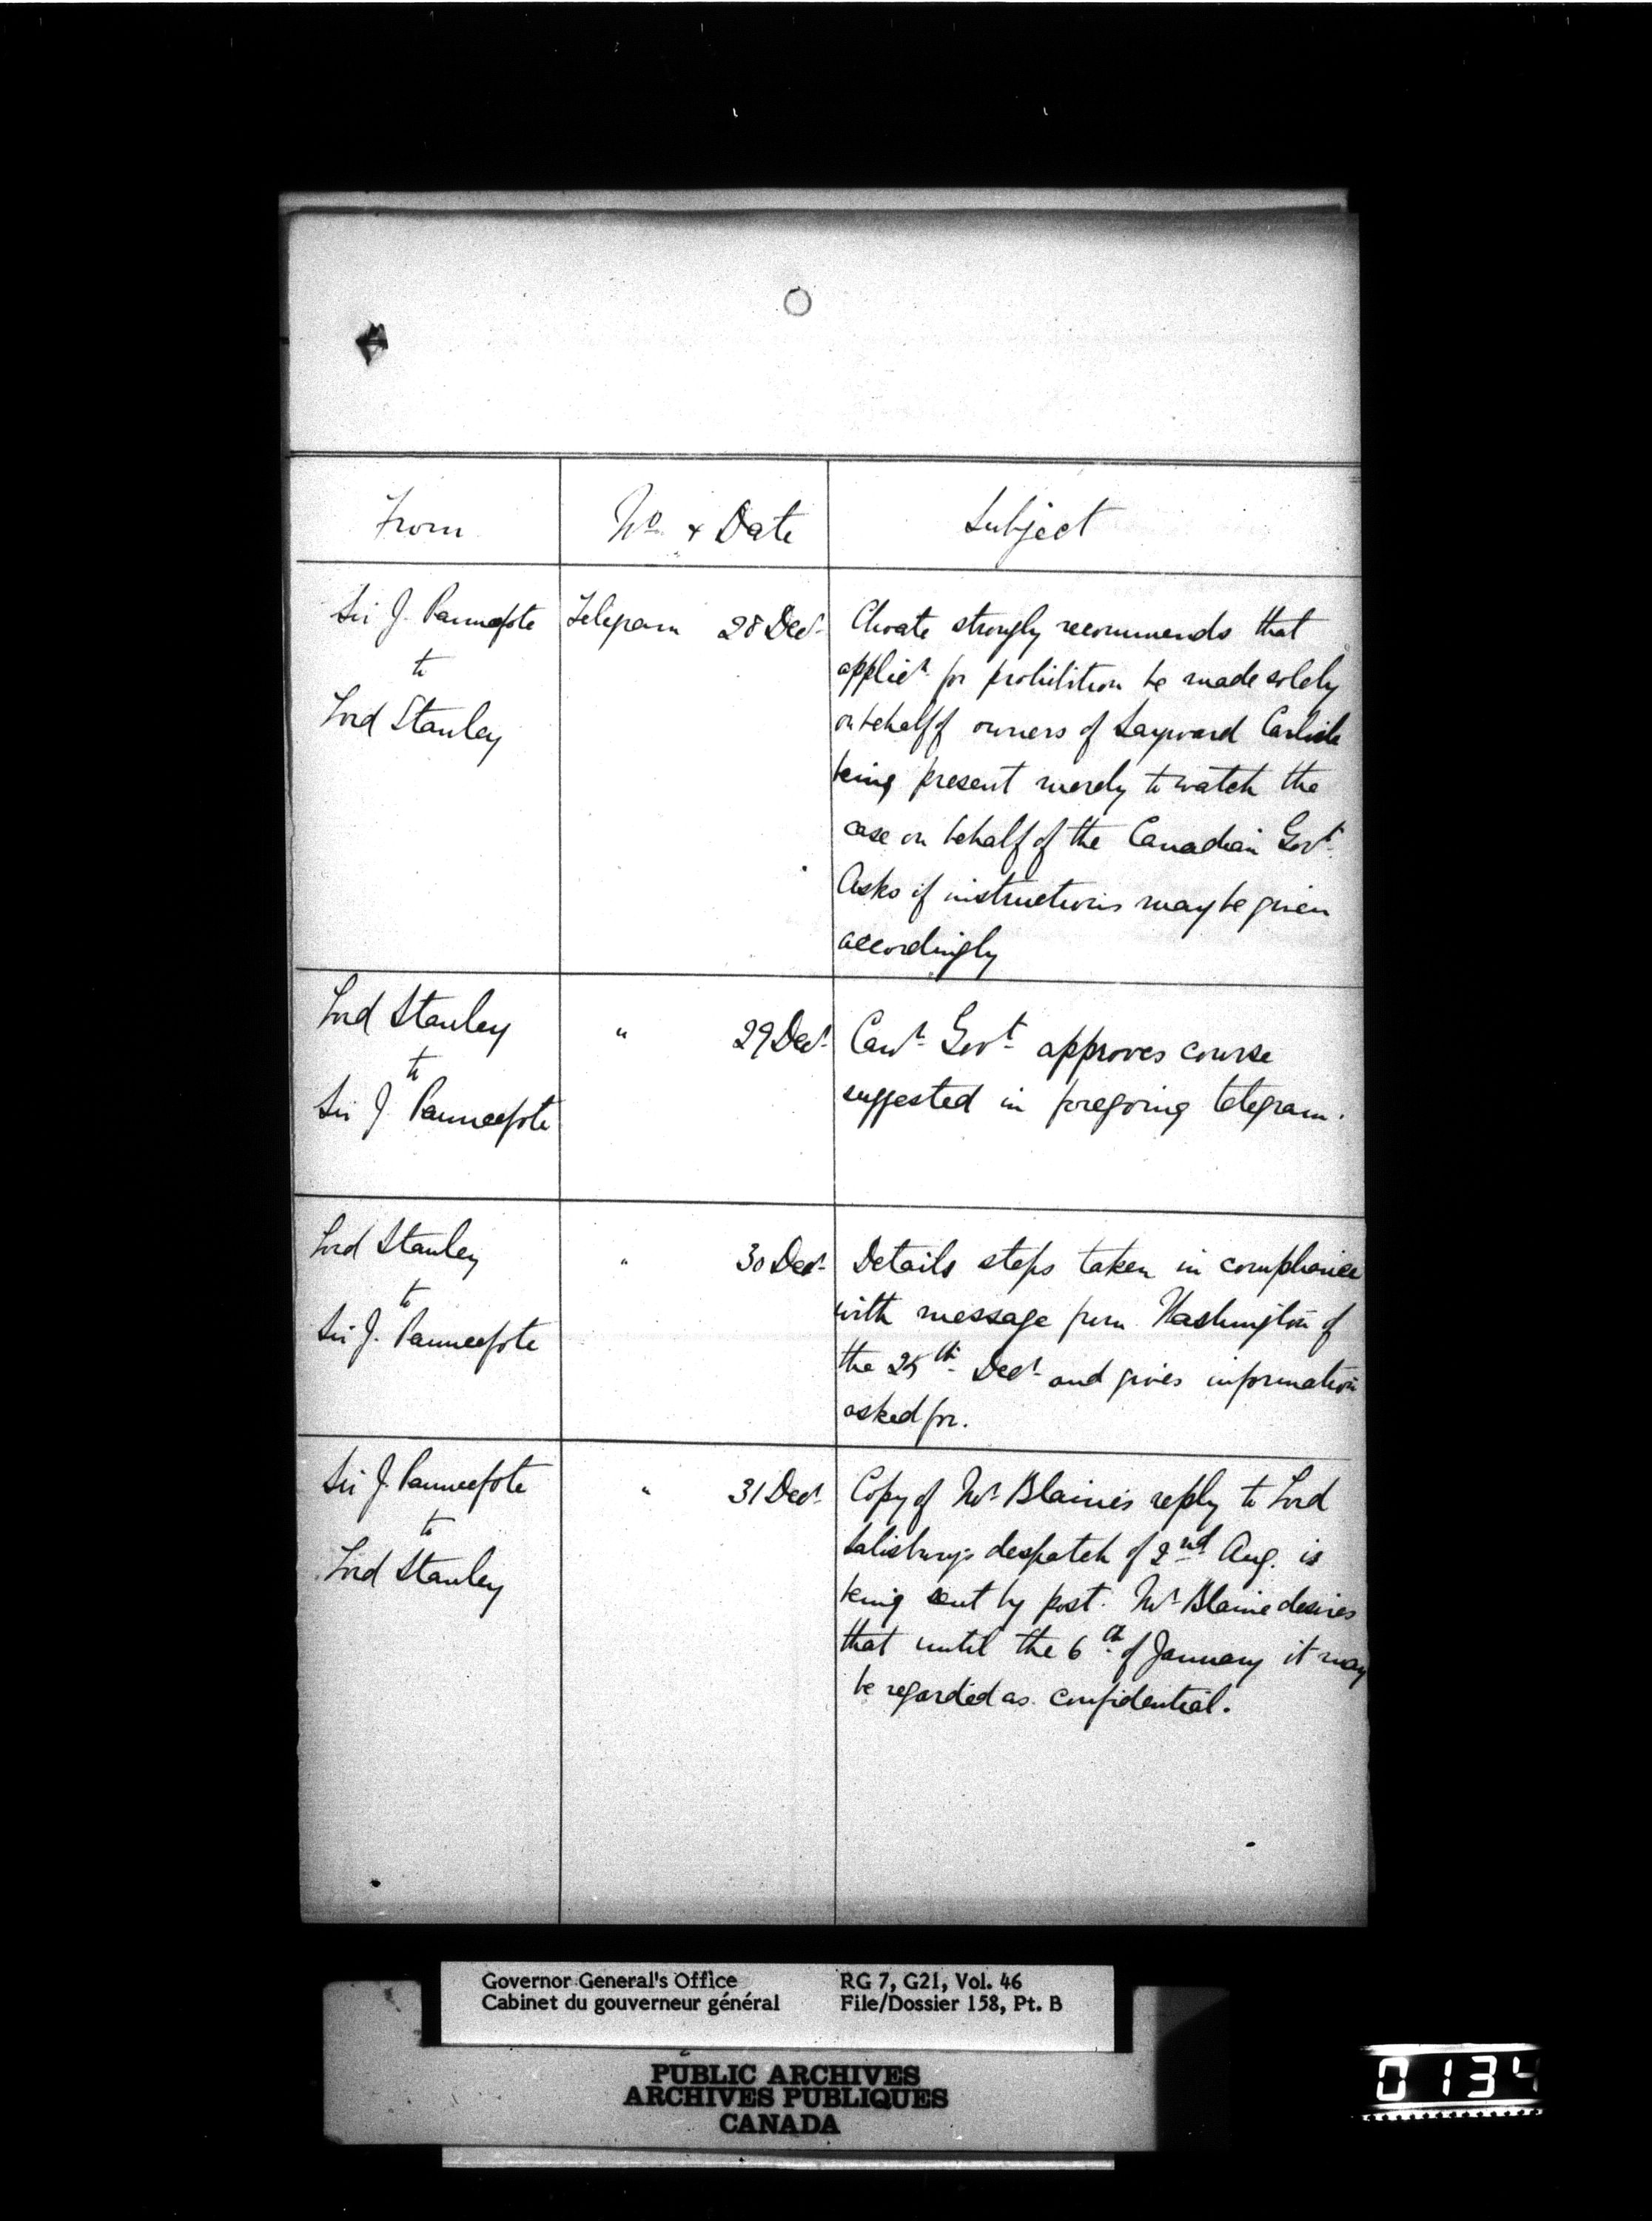 From
No. & Date
Subject
Sir J. Pauncefote
to
Lord Stanley
Telegram 28 Decr
Choate strongly recommends that
applicn for prohibition be made solely
on behalf of owners of Sayward Carlisle
being present merely to watch the
case on behalf of the Canadian Govt.
Asks if instructions may be given
accordingly
Lord Stanley
to
Sir J. Pauncefote
" 29 Decr
Cann Govt approves course
suggested in foregoing telegram.
Lord Stanley
to
Sir J. Pauncefote
" 30 Decr
Details steps taken in compliance
with message from Washington of
the 25th Decr and gives information
asked for.
Sir J. Pauncefote
to
Lord Stanley
" 31 Decr
Copy of Mr Blaine's reply to Lord
Salisbury's despatch of 2nd Aug. is
being sent by post. Mr Blaine desires
that until the 6th of January it may
be regarded as confidential.
Governor General's Office
Cabinet du gouverneur général
RG 7, G21, Vol. 46
File/Dossier 158, Pt. B
PUBLIC ARCHIVES
ARCHIVES PUBLIQUES
CANADA
0134